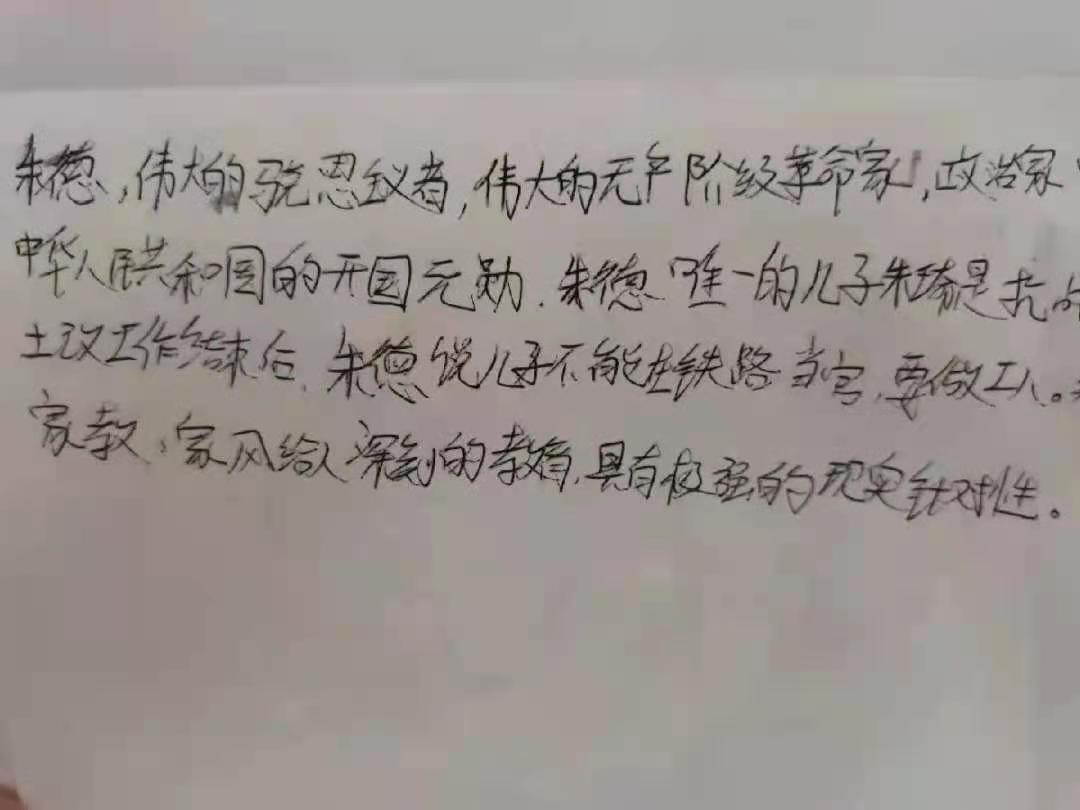 朱德,伟大的马克思主义者,伟大的无产阶级革命家,政治家
中华人民共和国的开国元勋.朱德唯一的儿子朱琦是抗战
土改工作结束后.朱德说儿子不能在铁路当官,要做工人。
家教、家风给人深刻的教育,具有极强的现实针对性。